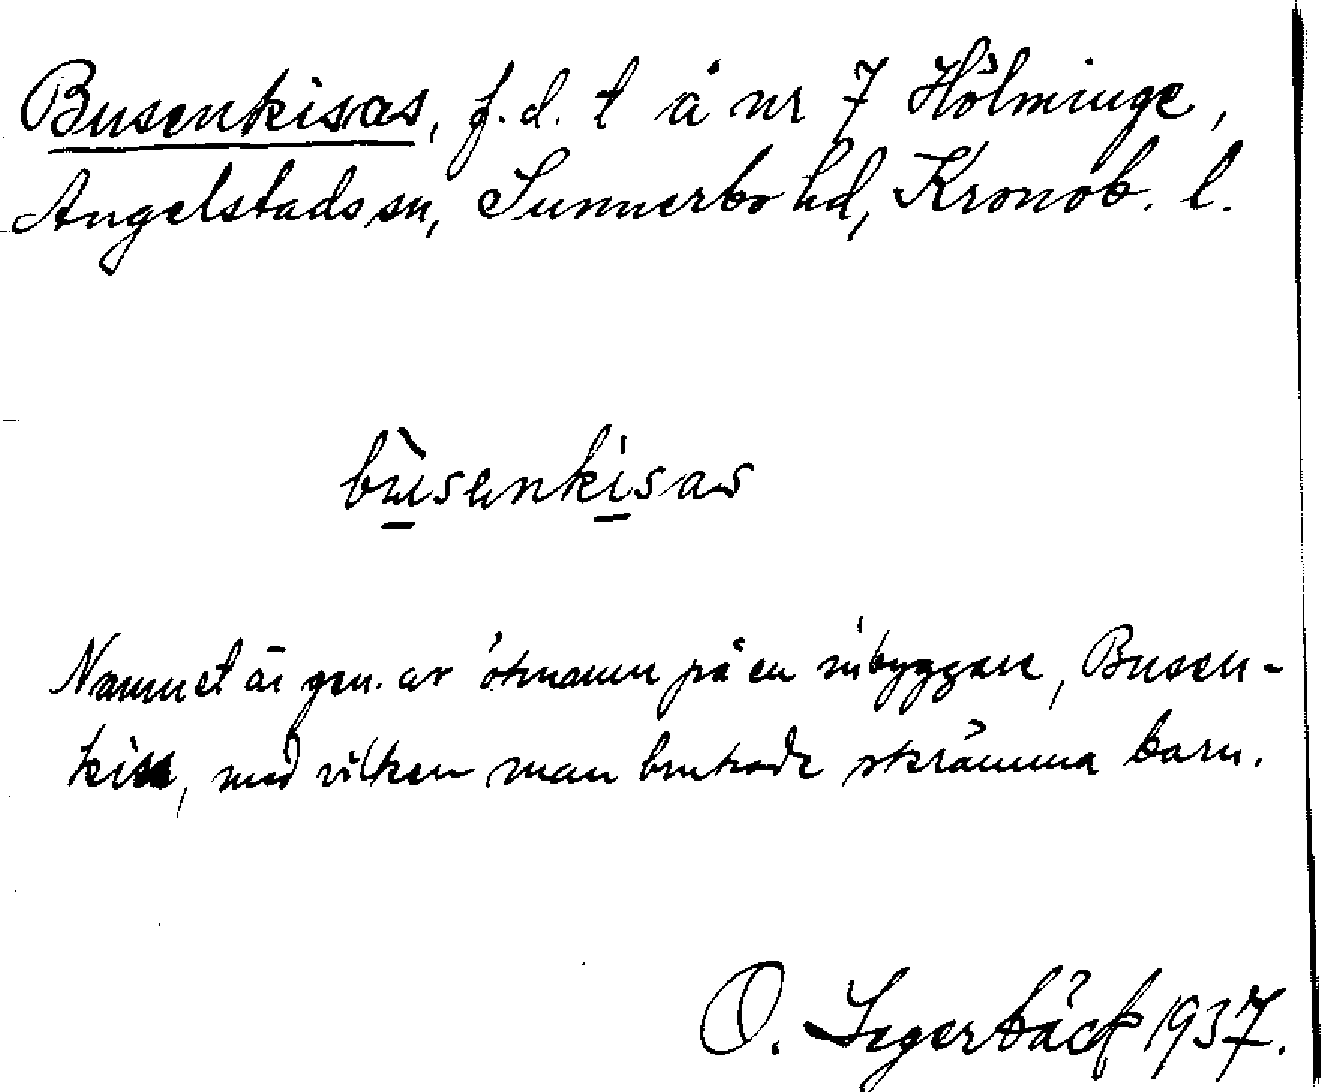 Busenkisas, f.d. t å nr 7 Hölminge,
Angelstads sn, Sunnerbo hd, Kronob. l.
bùsenkisas
Namnet är gen. av ötnamn på en inbyggare, Busen-
kise, med vilken man brukade skrämma barn.
O. Segerbäck 1937.